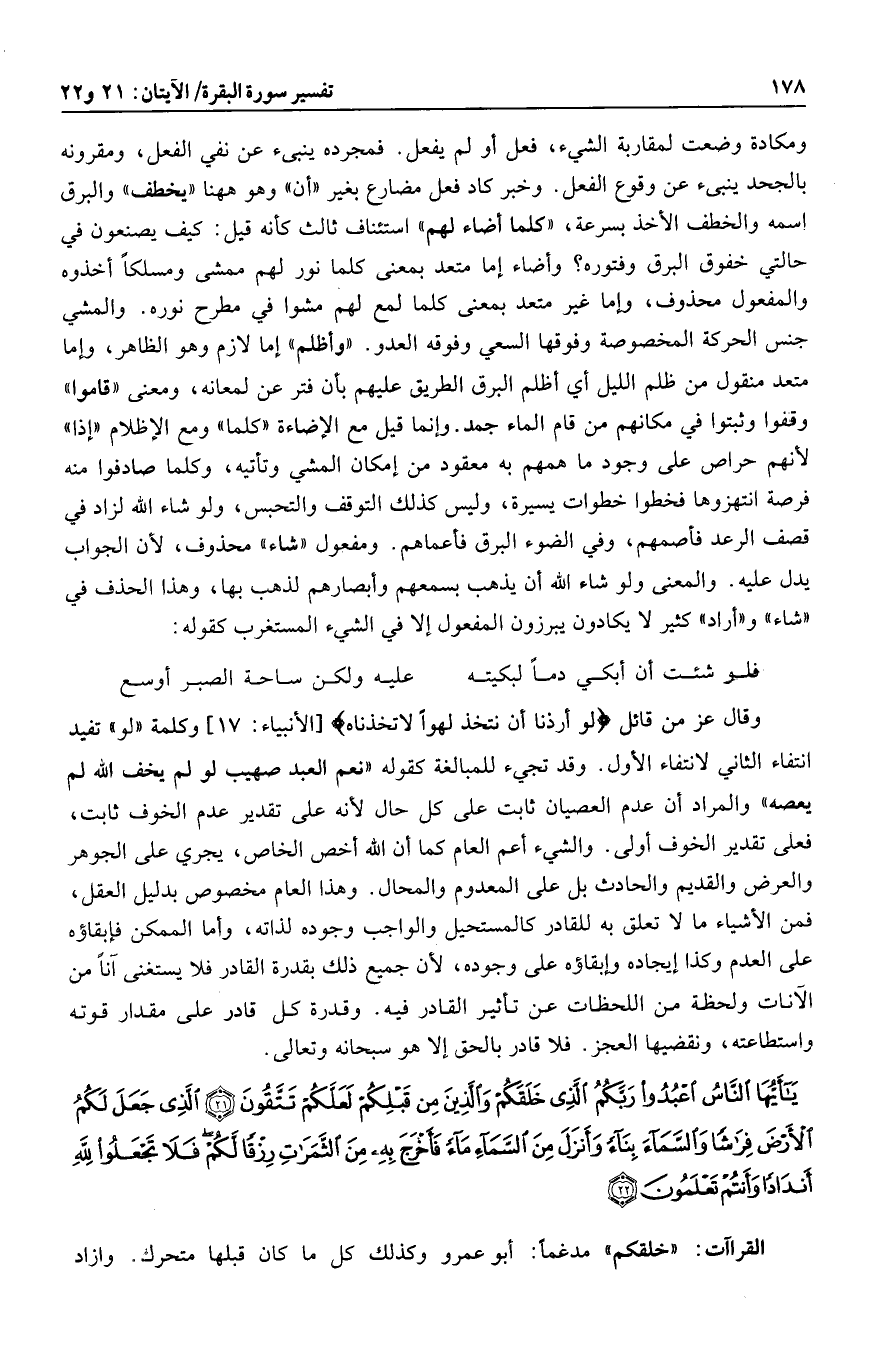 ١٧٨ تفسير سورة البقرة/ الآيتان: ٢١ و٢٢
ومكادة وضعت لمقاربة الشيء، فعل أو لم يفعل. فمجرده ينبىء عن نفي الفعل، ومقرونه
بالجحد ينبىء عن وقوع الفعل. وخبر كاد فعل مضارع بغير «أن» وهو ههنا «يخطف» والبرق
اسمه والخطف الأخذ بسرعة، «كلما أضاء لهم» استئناف ثالث كأنه قيل: كيف يصنعون في
حالتي خفوق البرق وفتوره؟ وأضاء إما متعد بمعنى كلما نور لهم ممشى ومسلكاً أخذوه
والمفعول محذوف، وإما غير متعد بمعنى كلما لمع لهم مشوا في مطرح نوره. والمشي
جنس الحركة المخصوصة وفوقها السعي وفوقه العدو. «وأظلم» إما لازم وهو الظاهر، وإما
متعد منقول من ظلم الليل أي أظلم البرق الطريق عليهم بأن فتر عن لمعانه، ومعنى «قاموا»
وقفوا وثبتوا في مكانهم من قام الماء جمد. وإنما قيل مع الإضاءة «كلما» ومع الإظلام «إذا»
لأنهم حراص على وجود ما همهم به معقود من إمكان المشي وتأتيه، وكلما صادفوا منه
فرصة انتهزوها فخطوا خطوات يسيرة، وليس كذلك التوقف والتحبس، ولو شاء الله لزاد في
قصف الرعد فأصمهم، وفي الضوء البرق فأعماهم. ومفعول «شاء» محذوف، لأن الجواب
يدل عليه. والمعنى ولو شاء الله أن يذهب بسمعهم وأبصارهم لذهب بها، وهذا الحذف في
«شاء» و«أراد» كثير لا يكادون يبرزون المفعول إلا في الشيء المستغرب كقوله:
فلو شئت أن أبكي دماً لبكيته عليه ولكن ساحة الصبر أوسع
وقال عز من قائل ﴿لو أرذنا أن نتخذ لهواً لاتخذناه﴾ [الأنبياء: ١٧] وكلمة «لو» تفيد
انتفاء الثاني لانتفاء الأول. وقد تجيء للمبالغة كقوله «نعم العبد صهيب لو لم يخف الله لم
يعصه» والمراد أن عدم العصيان ثابت على كل حال لأنه على تقدير عدم الخوف ثابت،
فعلى تقدير الخوف أولى. والشيء أعم العام كما أن الله أخص الخاص، يجري على الجوهر
والعرض والقديم والحادث بل على المعدوم والمحال. وهذا العام مخصوص بدليل العقل،
فمن الأشياء ما لا تعلق به للقادر كالمستحيل والواجب وجوده لذاته، وأما الممكن فإبقاؤه
على العدم وكذا إيجاده وإبقاؤه على وجوده، لأن جميع ذلك بقدرة القادر فلا يستغنى آناً من
الآنات ولحظة من اللحظات عن تأثير القادر فيه. وقدرة كل قادر على مقدار قوته
واستطاعته، ونقضيها العجز. فلا قادر بالحق إلا هو سبحانه وتعالى.
يَٰٓأَيُّهَا ٱلنَّاسُ ٱعْبُدُوا۟ رَبَّكُمُ ٱلَّذِى خَلَقَكُمْ وَٱلَّذِينَ مِن قَبْلِكُمْ لَعَلَّكُمْ تَتَّقُونَ ﴿٢١﴾ ٱلَّذِى جَعَلَ لَكُمُ
ٱلْأَرْضَ فِرَٰشًا وَٱلسَّمَآءَ بِنَآءً وَأَنزَلَ مِنَ ٱلسَّمَآءِ مَآءً فَأَخْرَجَ بِهِۦ مِنَ ٱلثَّمَرَٰتِ رِزْقًا لَّكُمْ ۖ فَلَا تَجْعَلُوا۟ لِلَّهِ
أَندَادًا وَأَنتُمْ تَعْلَمُونَ ﴿٢٢﴾
القراآت: «خلقكم» مدغماً: أبو عمرو وكذلك كل ما كان قبلها متحرك. وازاد